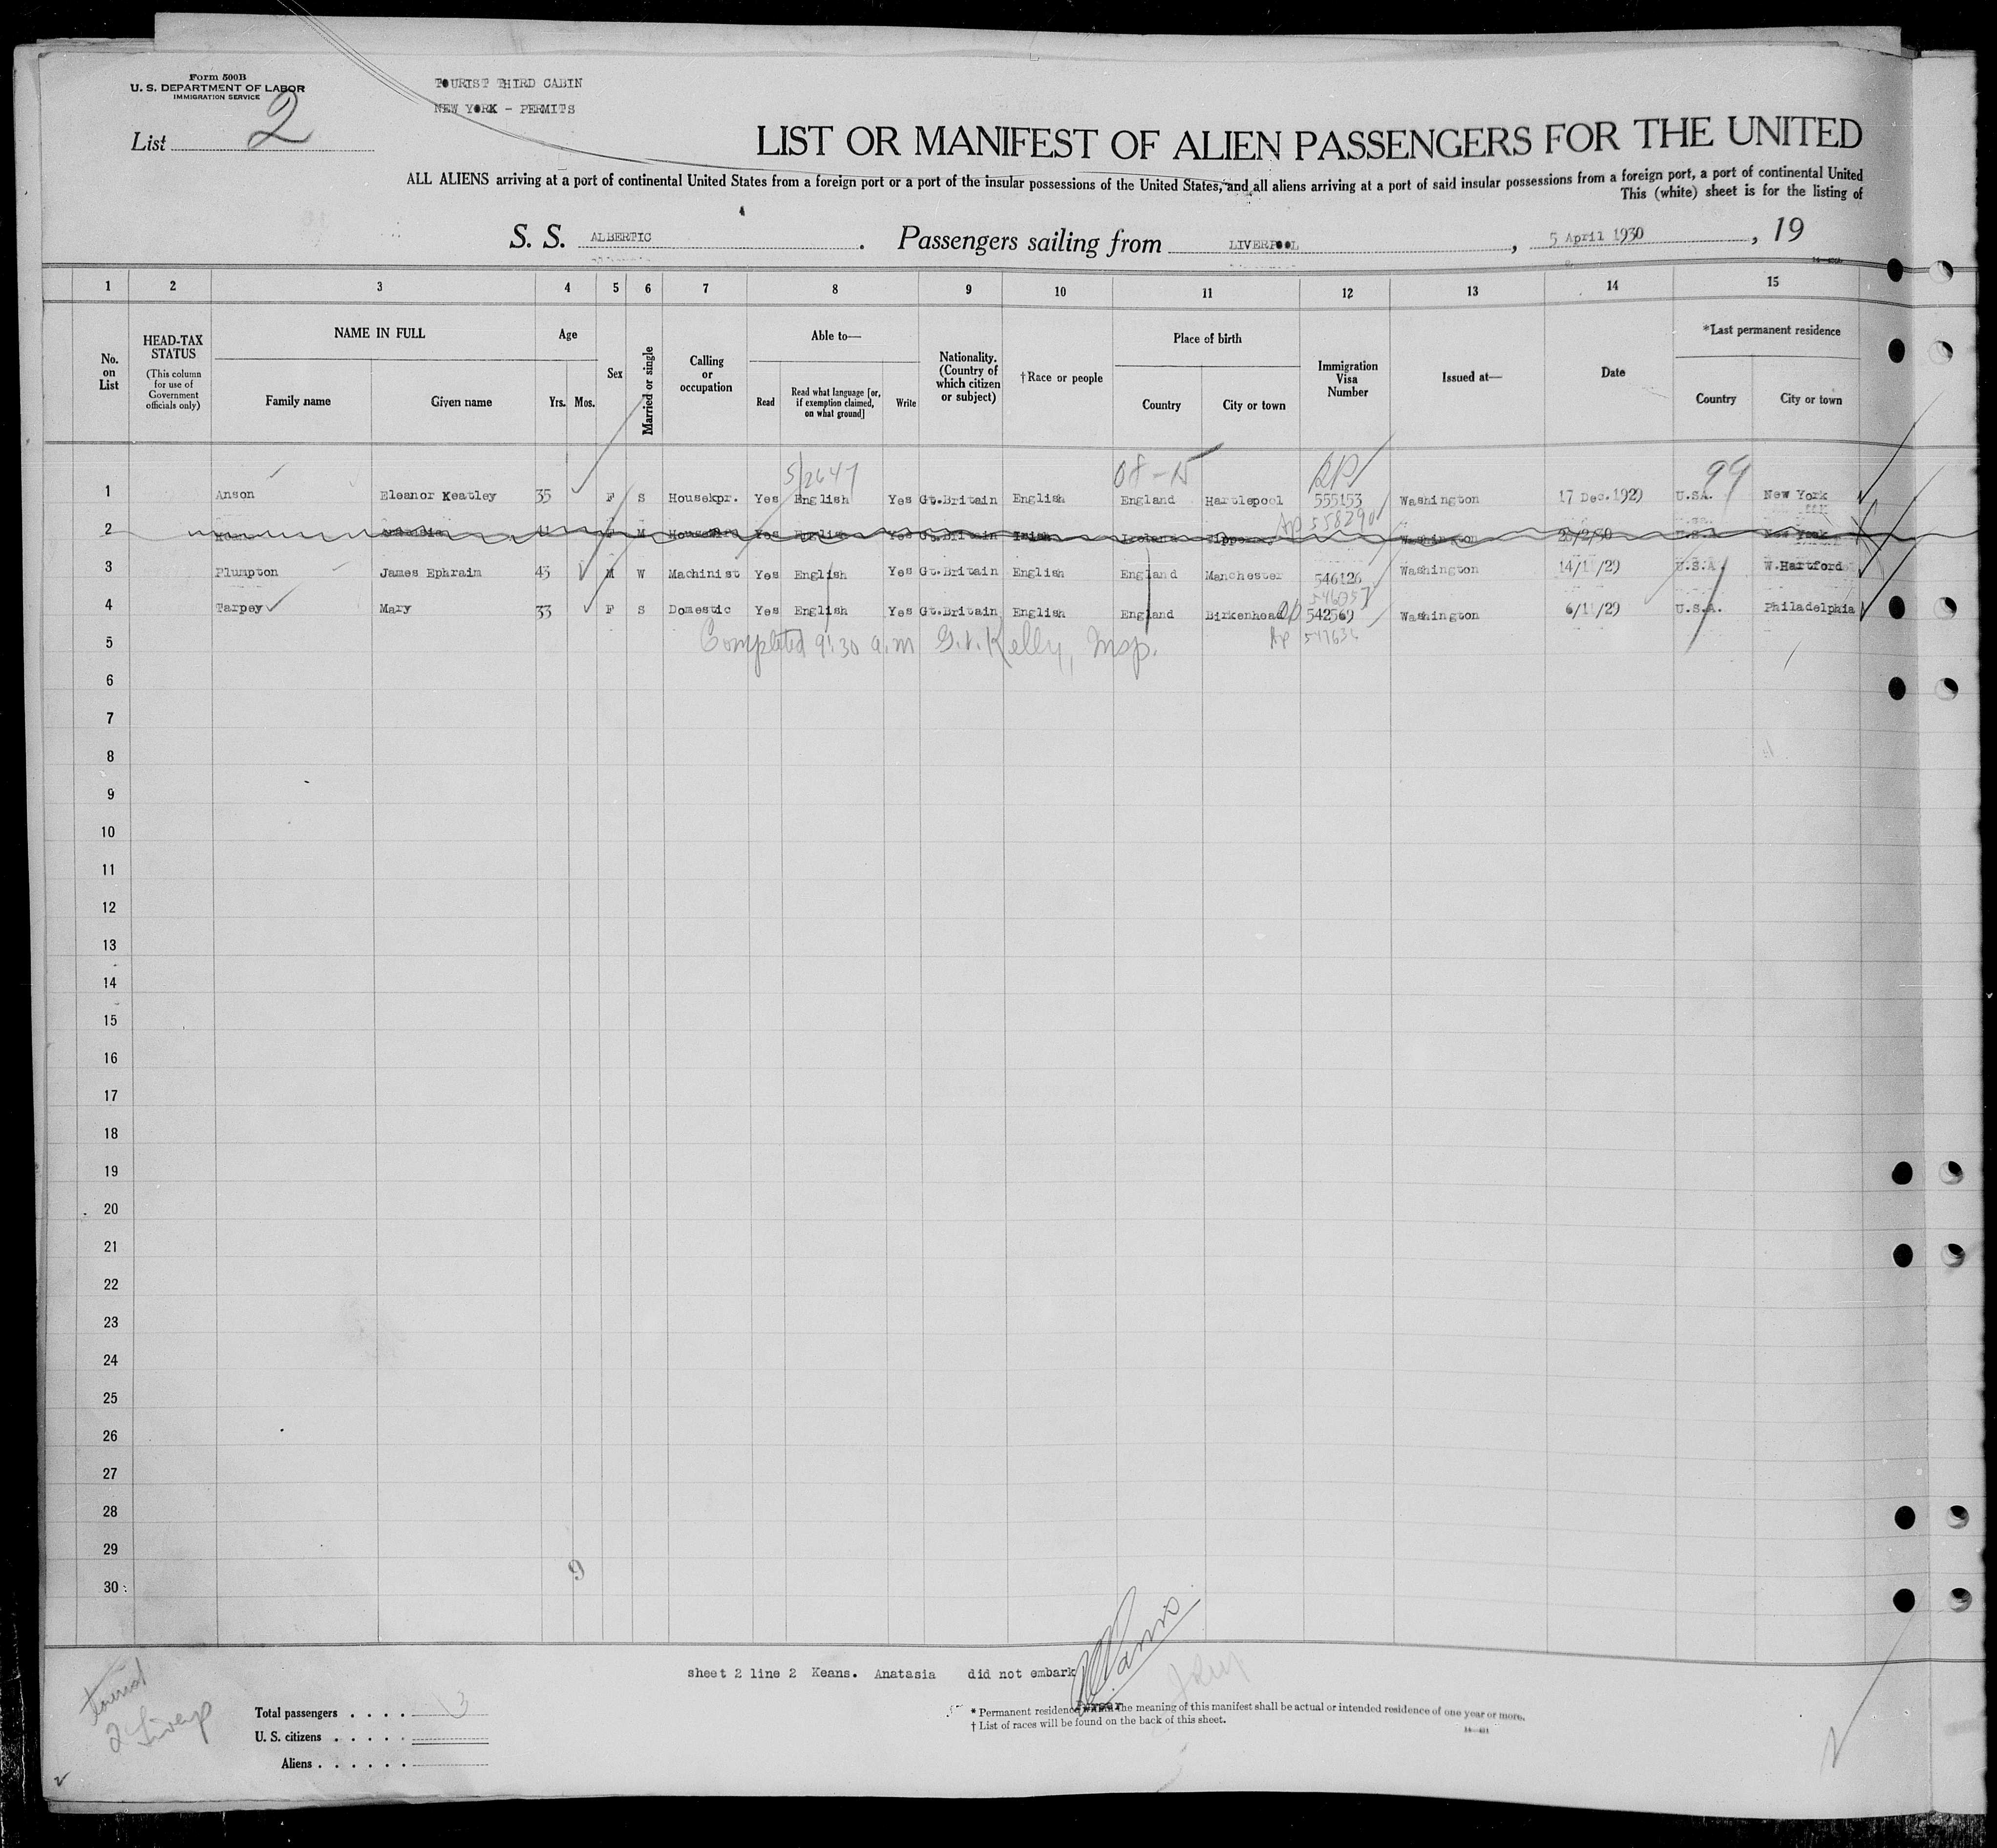 Form 500B
U. S. DEPARTMENT OF LABOR
IMMIGRATION SERVICE
TOURIST THIRD CABIN
NEW YORK - PERMITS
List 2
LIST OR MANIFEST OF ALIEN PASSENGERS FOR THE UNITED
ALL ALIENS arriving at a port of continental United States from a foreign port or a port of the insular possessions of the United States, and all aliens arriving at a port of said insular possessions from a foreign port, a port of continental United
This (white) sheet is for the listing of
S. S. ALBERTIC. Passengers sailing from LIVERPOOL, 5 April 1930, 19
1 2 3 4 5 6 7 8 9 10 11 12 13 14 15
No. on List
HEAD-TAX STATUS
(This column for use of Government officials only)
NAME IN FULL
Family name
Given name
Age
Yrs. Mos.
Sex
Married or single
Calling or occupation
Able to—
Read
Read what language [or, if exemption claimed, on what ground]
Write
Nationality. (Country of which citizen or subject)
†Race or people
Place of birth
Country
City or town
Immigration Visa Number
Issued at—
Date
*Last permanent residence
Country
City or town
5/2647 08-15 RP 99
1 Anson Eleanor Keatley 35 F S Housekpr. Yes English Yes Gt.Britain English England Hartlepool 555153 Washington 17 Dec.1929 U.SA. New York
Ap 558290
2 41 F M Housewife Yes English Yes Gt.Britain Irish Ireland Washington U.S.A New York
3 Plumpton James Ephraim 43 M W Machinist Yes English Yes Gt.Britain English England Manchester 546126 Washington 14/11/29 U.S.A. W.Hartford
4 Tarpey Mary 33 F S Domestic Yes English Yes Gt.Britain English England Birkenhead 542569 Washington 6/11/29 U.S.A. Philadelphia
5 Completed 9:30 a.m G.V. Kelly, Insp.
6
7
8
9
10
11
12
13
14
15
16
17
18
19
20
21
22
23
24
25
26
27
28
29
30
9
sheet 2 line 2 Keans. Anatasia did not embark
Purser
tourist
Total passengers . . . . 3
U. S. citizens . . . . .
Aliens . . . . . .
* Permanent residence within the meaning of this manifest shall be actual or intended residence of one year or more.
† List of races will be found on the back of this sheet.